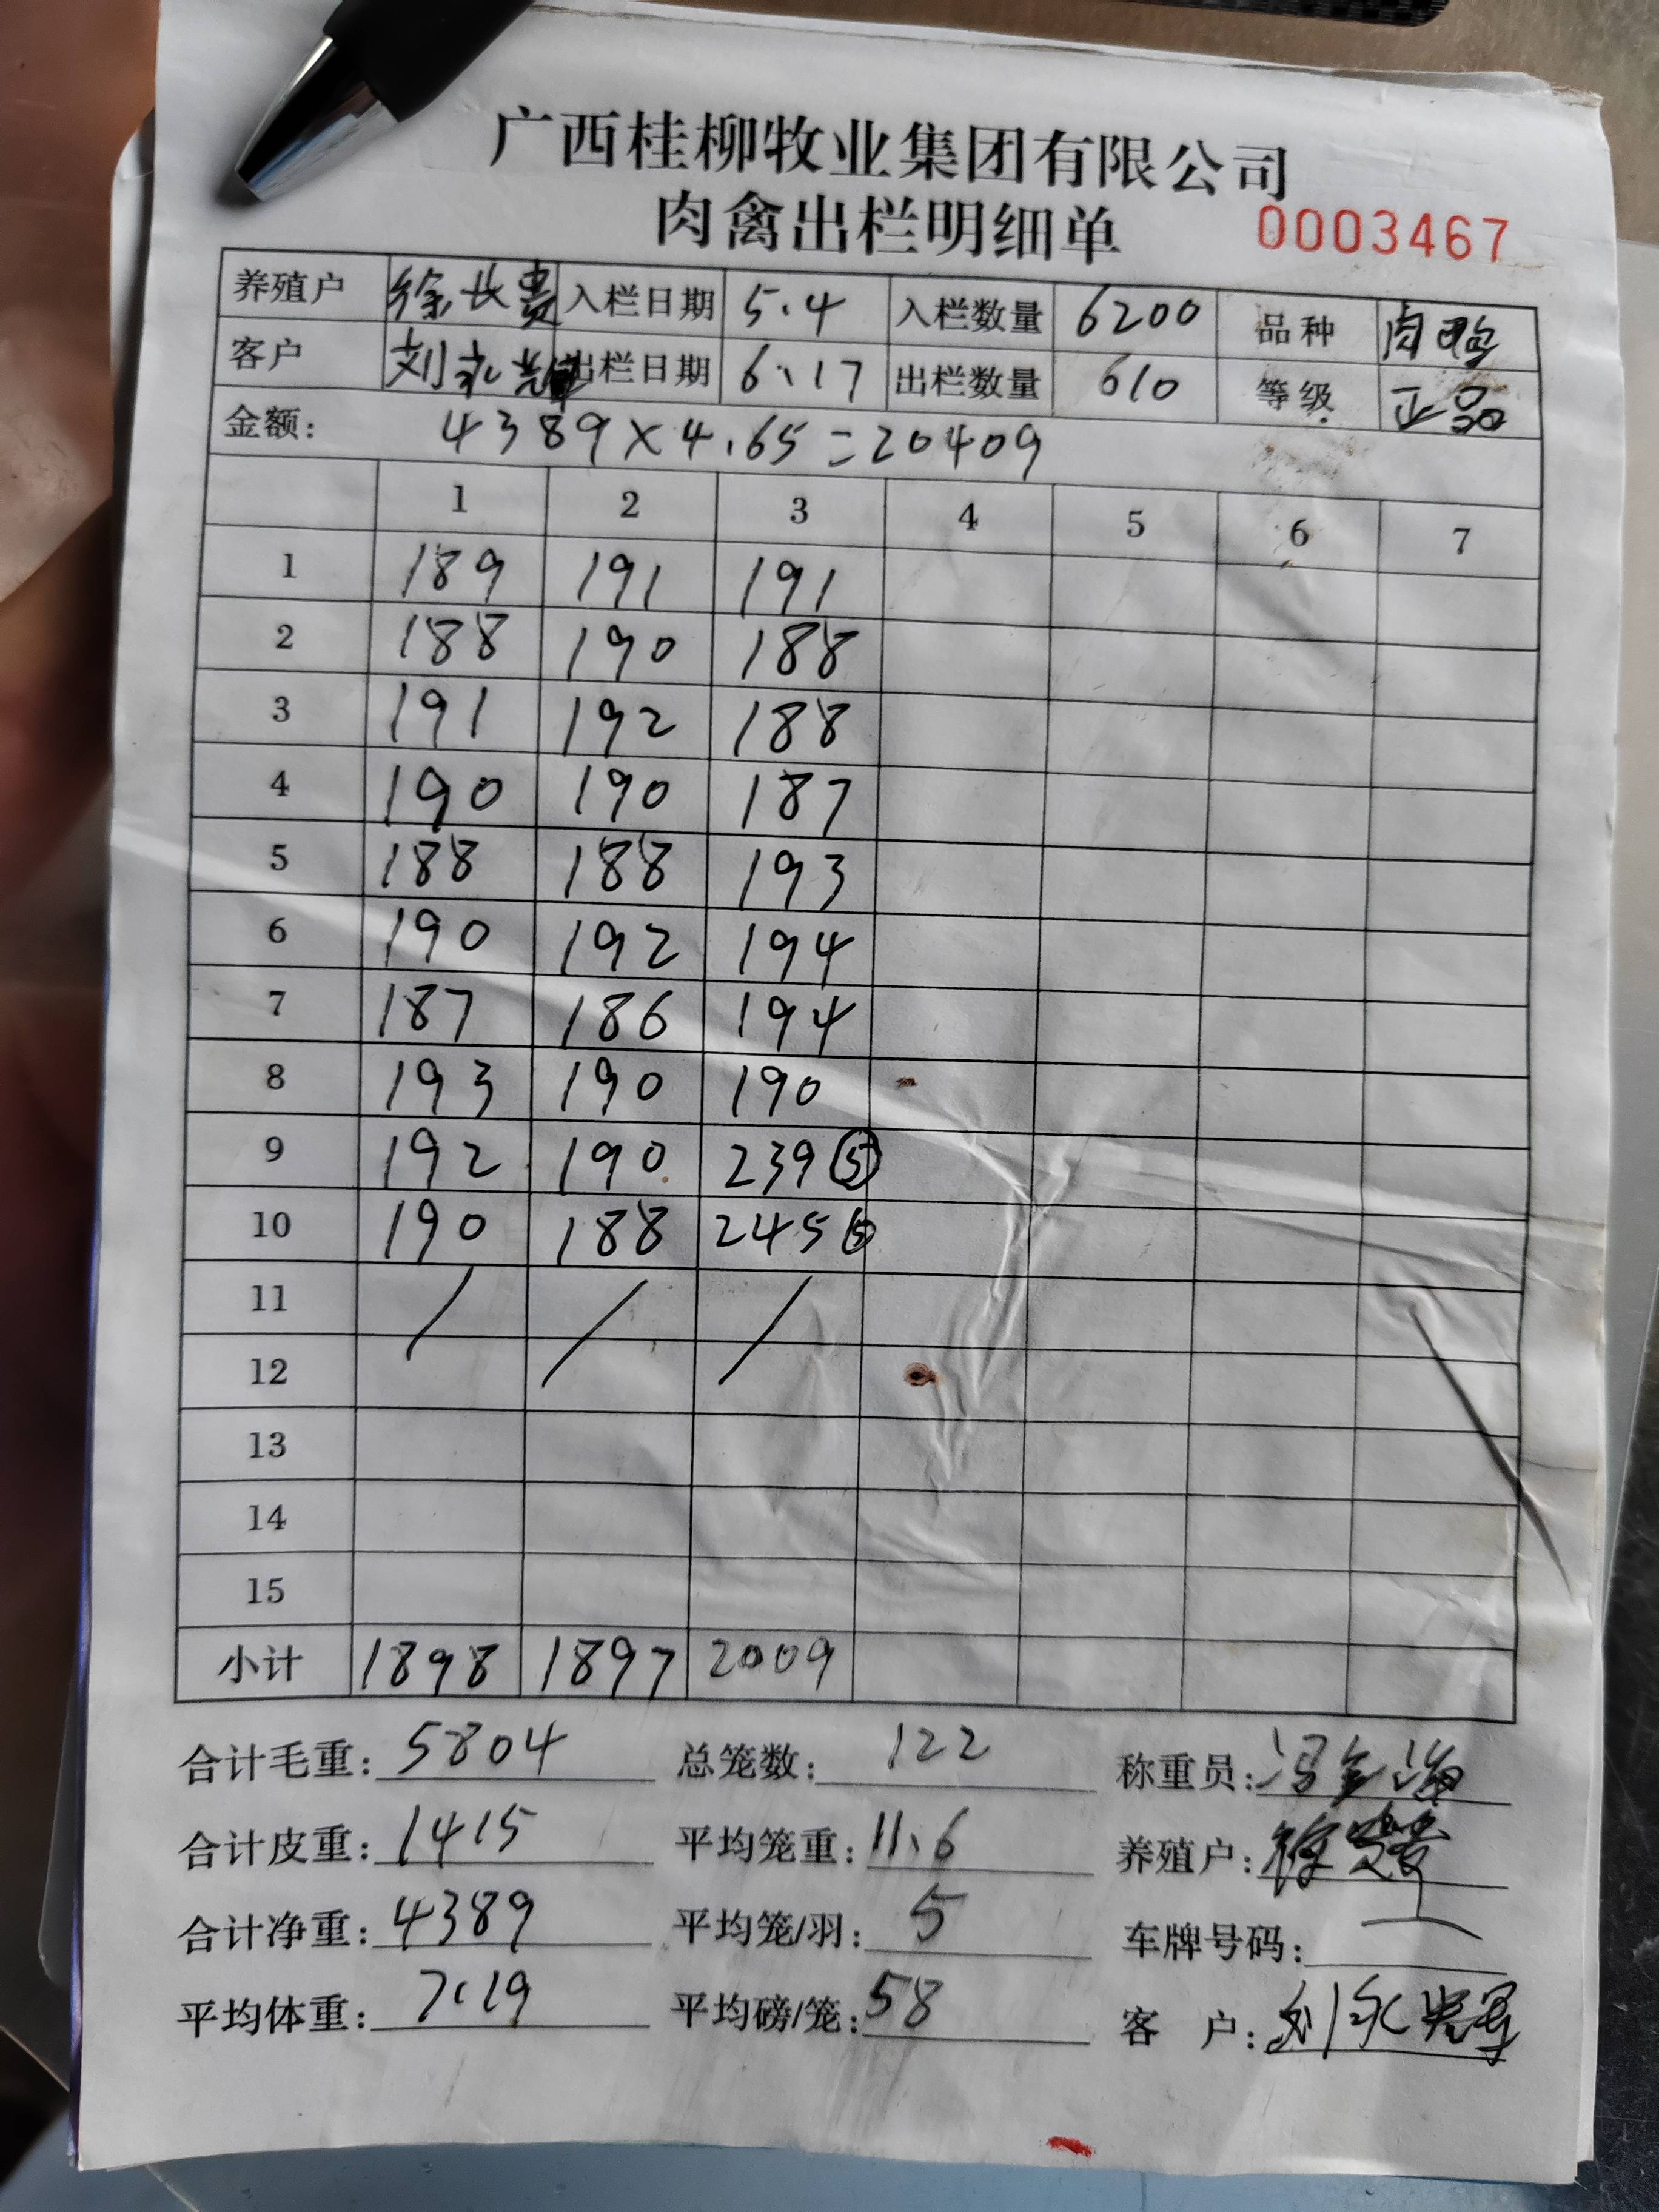 广西桂柳牧业集团有限公司
肉禽出栏明细单 0003467
养殖户 徐长贵 入栏日期 5.4 入栏数量 6200 品种 肉鸭
客户 刘永光 出栏日期 6.17 出栏数量 610 等级 正品
金额: 4389×4.65=20409
1 2 3 4 5 6 7
1 189 191 191
2 188 190 188
3 191 192 188
4 190 190 187
5 188 188 193
6 190 192 194
7 187 186 194
8 193 190 190
9 192 190 239⑤
10 190 188 245⑤
11 / / /
12
13
14
15
小计 1898 1897 2009
合计毛重: 5804 总笼数: 122 称重员: 冯金海
合计皮重: 1415 平均笼重: 11.6 养殖户: 徐长贵
合计净重: 4389 平均笼/羽: 5 车牌号码:
平均体重: 7.19 平均磅/笼: 58 客 户: 刘永